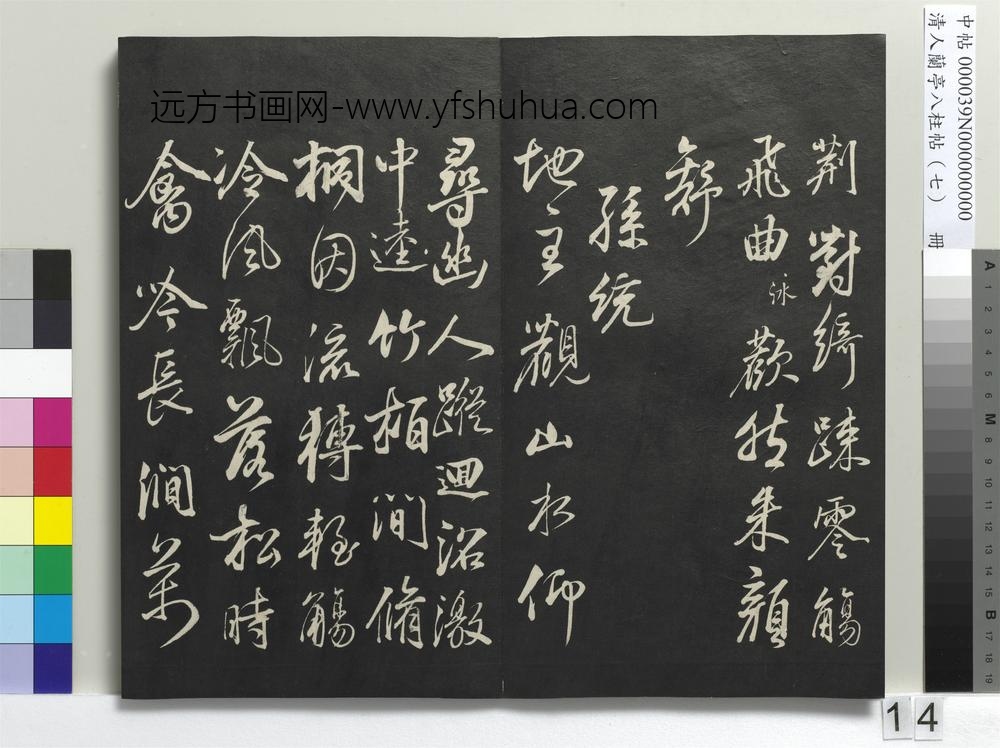 远方书画网-www.yfshuhua.com
中帖 000039N000000000
清人蘭亭八柱帖（七） 冊
荆對綺踈零觴
飛曲泳歡然朱顏
舒
孫統
地主觀山水仰
尋幽人蹤迴沼激
中逵竹柏澗脩
桐因流轉輕觴
冷風飄落松時
禽吟長澗萬
A 1 2 3 4 5 6 M 8 9 10 11 12 13 14 15 B 17 18 19
14